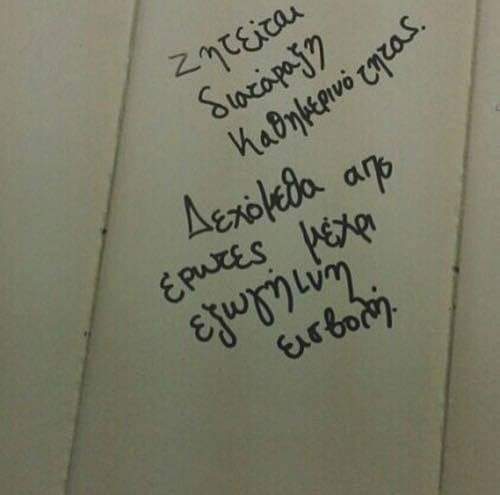 Ζητείται
διατάραξη
καθημερινότητας.
Δεχόμεθα απο
έρωτες μέχρι
εξωγήινη
εισβολή.